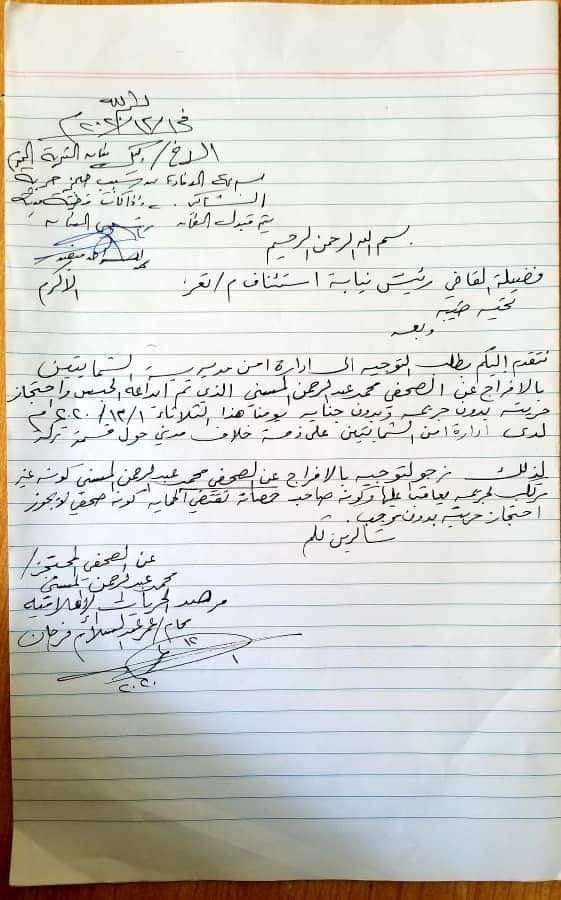 في ١/١٢/٢٠٢٠م
الاخ / وكيل نيابة التربة المحترم
سرعة الافادة عن سبب حجز حرية
الشاكي
بسم الله الرحمن الرحيم
فضيلة القاضي رئيس نيابة استئناف م/تعز الأكرم
تحية طيبة
وبعد
نتقدم إليكم بطلب التوجيه الى ادارة امن مديرية الشمايتين
بالافراج عن الصحفي محمد عبدالرحمن المسني الذي تم ايداعه الحبس واحتجاز
حريته بدون جريمه وبدون جنايه يومنا هذا الثلاثاء ١/١٢/٢٠٢٠م
لدى ادارة امن الشمايتين على ذمة خلاف مدني حول قسمة تركه
لذلك نرجو التوجيه بالافراج عن الصحفي محمد عبدالرحمن المسني كونه غير
مرتكب لجريمه يعاقب عليها وكونه صاحب تقتضي الحمايه كونه صحفي لا يجوز
احتجاز حريته بدون موجب.
شاكرين لكم
عن الصحفي المحتجز/
محمد عبدالرحمن المسني
مرصد الحريات الإعلامية
محام/ عمر عبدالسلام فرحان
١٢
١
٢٠٢٠